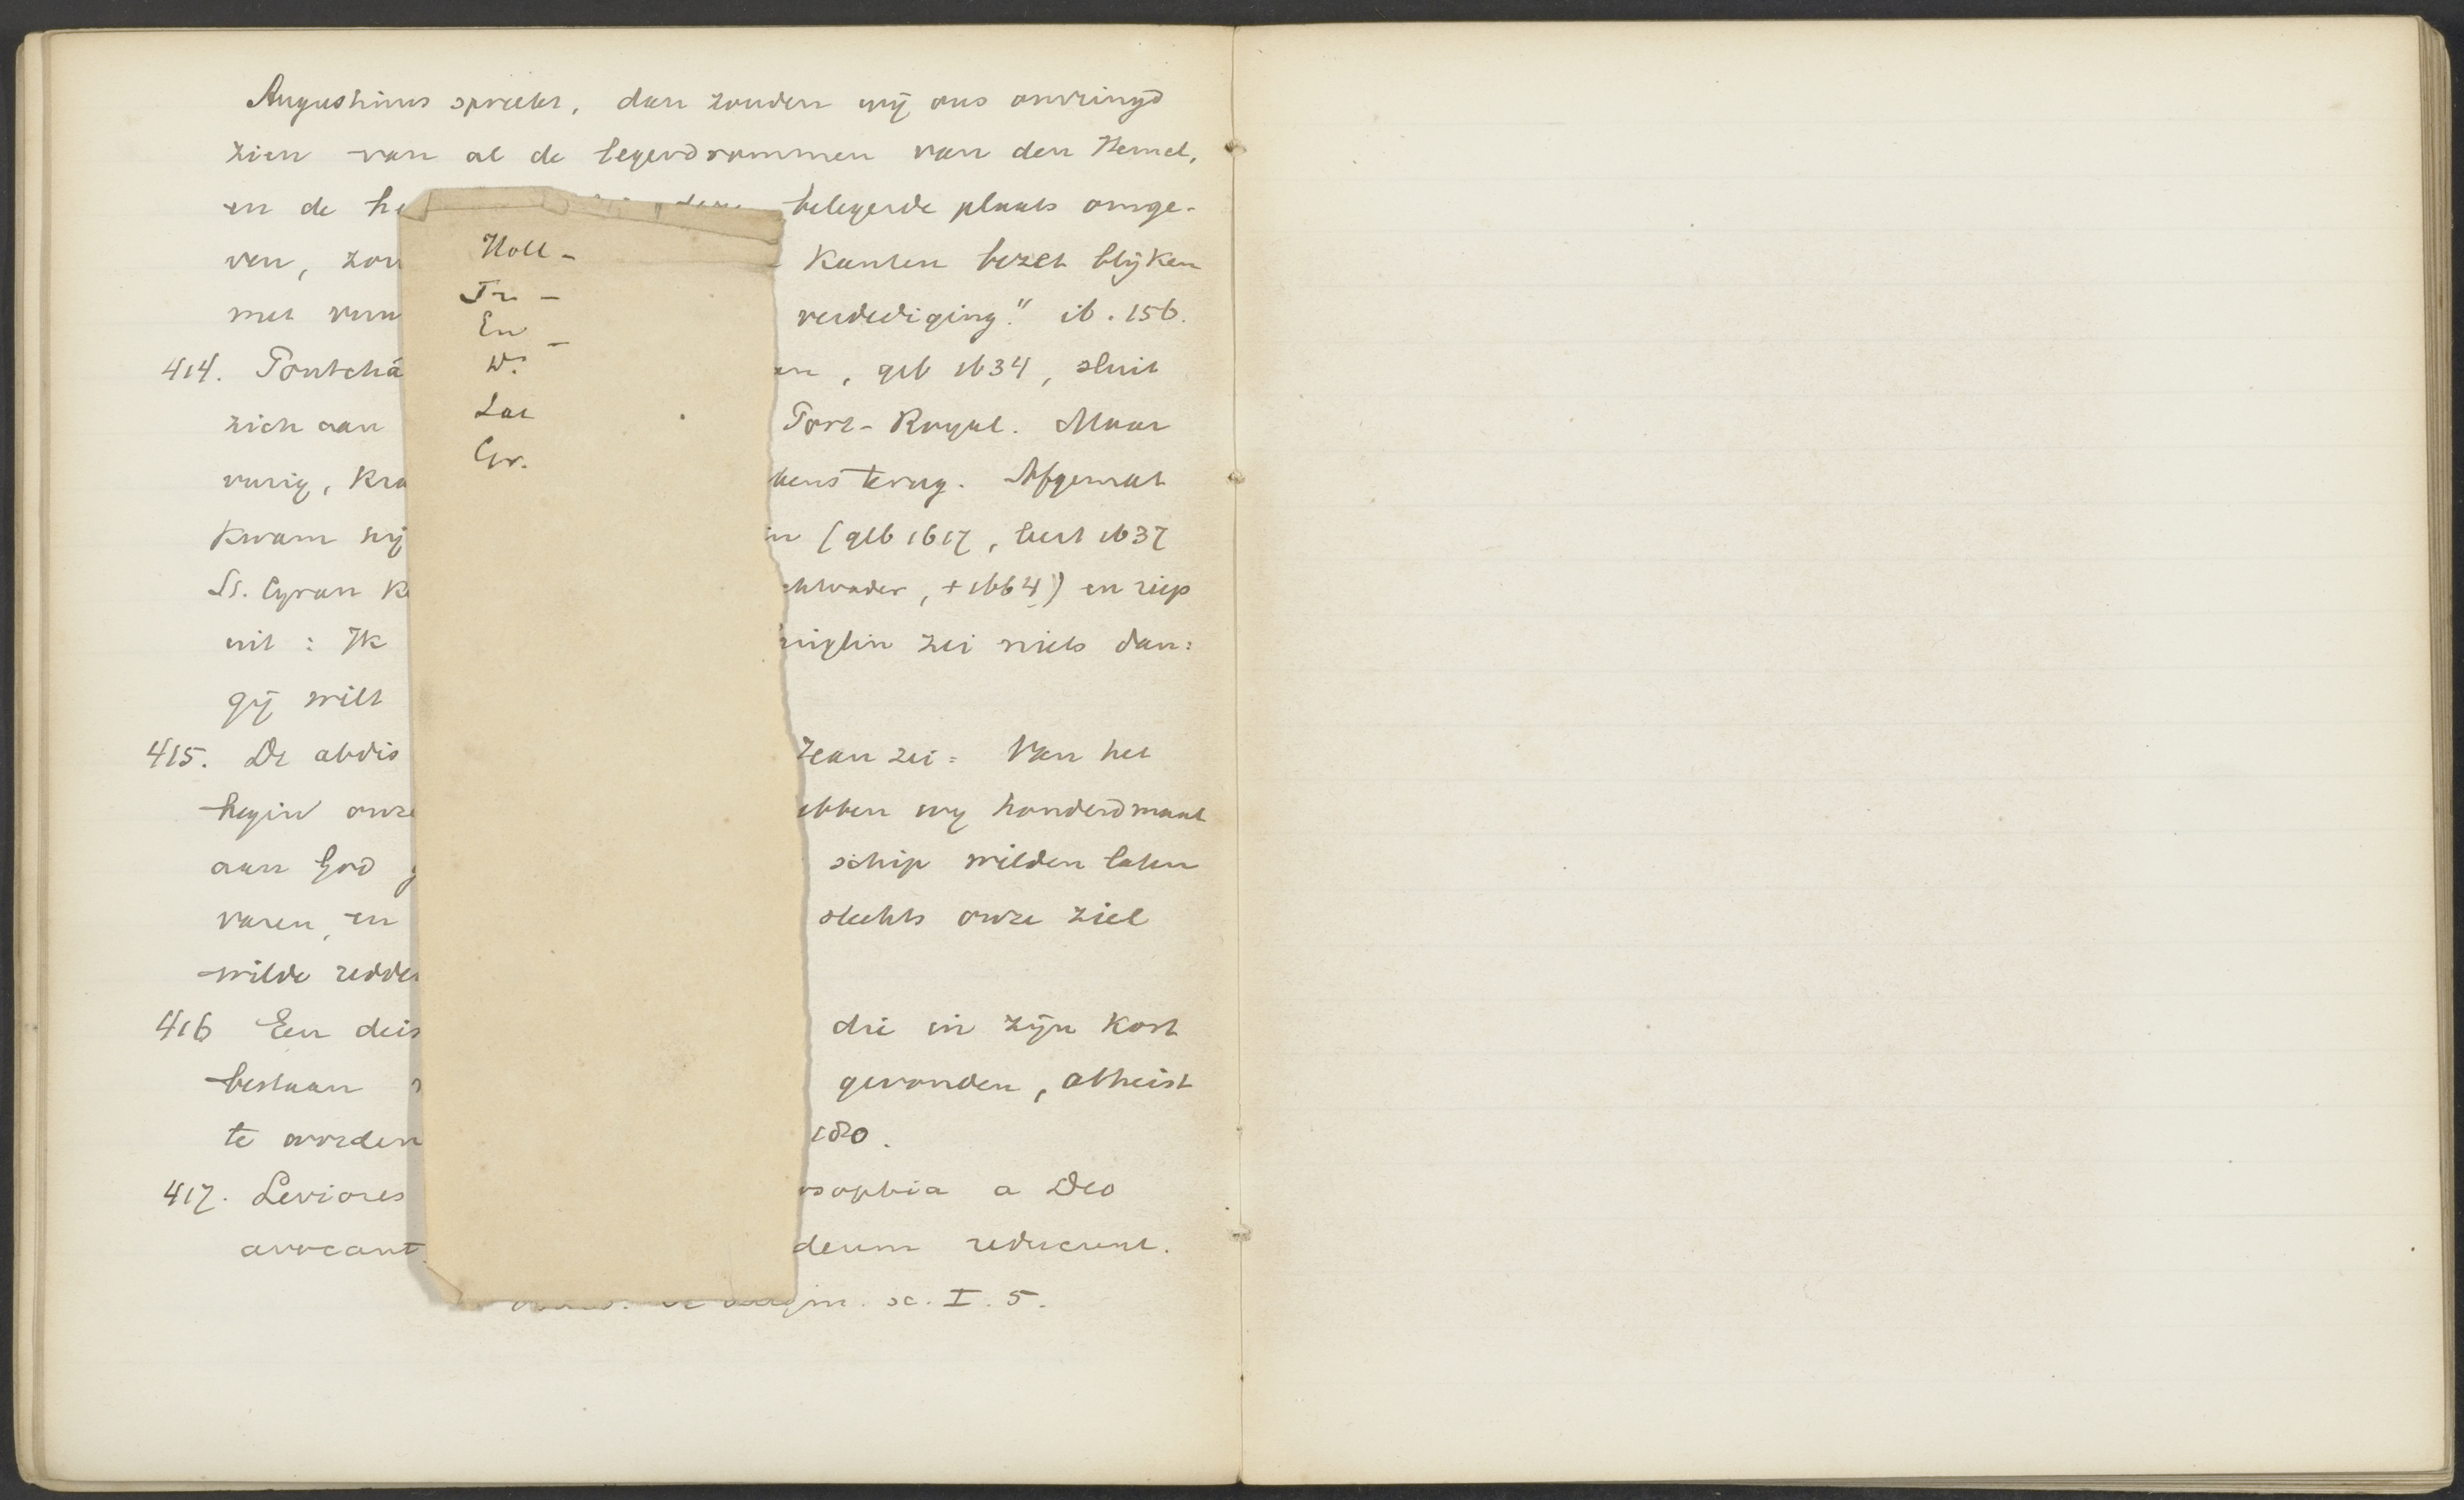 Augustinus spreekt, dan zouden wij ons omringd
zien van al de legerdrommen van den Hemel,
en de he belegerde plaats omge-
ven, zou kanten bezet blijken
met vuu verdediging." ib. 156.
414. Pontchâ en, geb 1634, sluit
zich aan Port-Royal. Maar
vurig, kra kens terug. Afgemat
kwam hij in (geb 1617, leert 1637
St. Cyran ke chtvader, +1664) en riep
uit: Ik inglin zei niets dan:
gij wilt
415. De abdis Jean zei: Van het
begin onze ebben wij honderdmaal
aan God g schip wilden laten
varen, en slechts onze ziel
wilde redde
416 Een deis die in zijn kort
bestaan gevonden, atheist
te worden 180.
417. Leviores osophia a Deo
avocant deum reducunt.
sc. I. 5.
Holl -
Fr -
En -
D.
Lat
Gr.